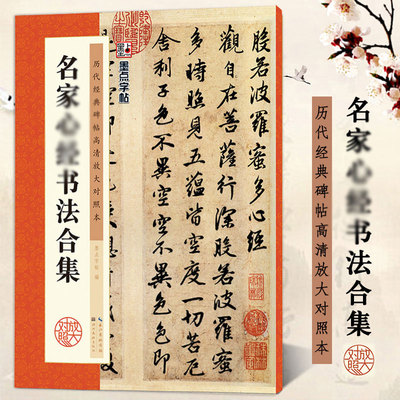 名家心经书法合集
历代经典碑帖高清放大对照本
放大对照
墨点字帖
般若波羅蜜多心經
觀自在菩薩行深般若波羅蜜
多時照見五蘊皆空度一切苦厄
舍利子色不異空空不異色色即
名家心经书法合集
历代经典碑帖高清放大对照本
放大对照